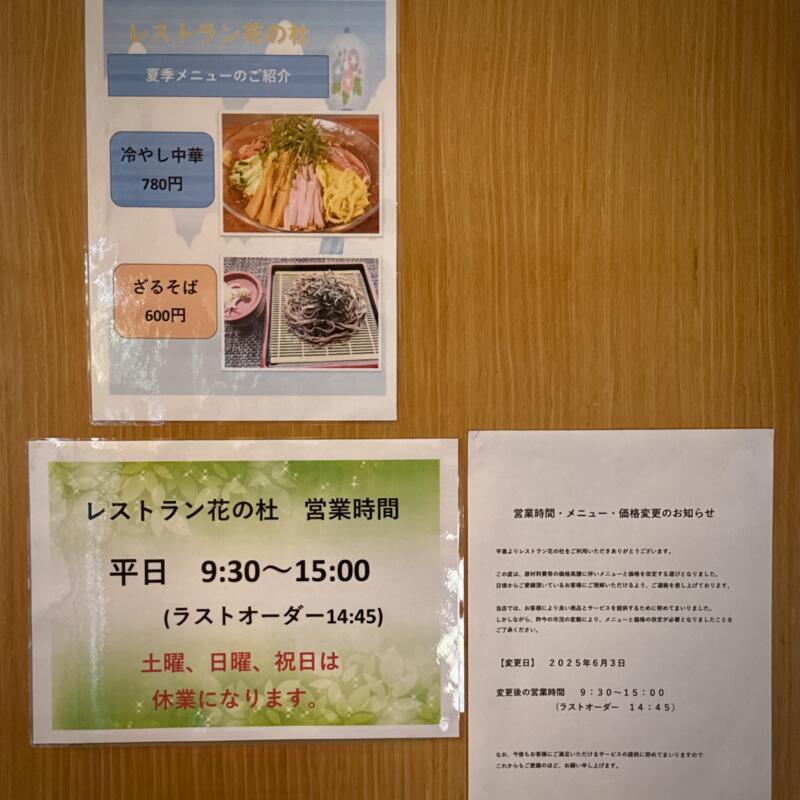 レストラン花の杜
夏季メニューのご紹介
冷やし中華
780円
ざるそば
600円
レストラン花の杜　営業時間
平日　9:30～15:00
(ラストオーダー14:45)
土曜、日曜、祝日は
休業になります。
営業時間・メニュー・価格変更のお知らせ
平素よりレストラン花の杜をご利用いただきありがとうございます。
この度は、原材料費等の価格高騰に伴いメニューと価格を改定する運びとなりました。
日頃からご愛顧頂いているお客様にご理解いただけるよう、ご連絡を差し上げております。
当店では、お客様により良い商品とサービスを提供するために努めてまいりました。
しかしながら、昨今の市況の変動により、メニューと価格の改定が必要となりましたことを
ご了承ください。
【変更日】　２０２５年６月３日
変更後の営業時間　９：３０～１５：００
（ラストオーダー　１４：４５）
なお、今後もお客様にご満足いただけるサービスの提供に努めてまいりますので
これからもご愛顧のほど、お願い申し上げます。